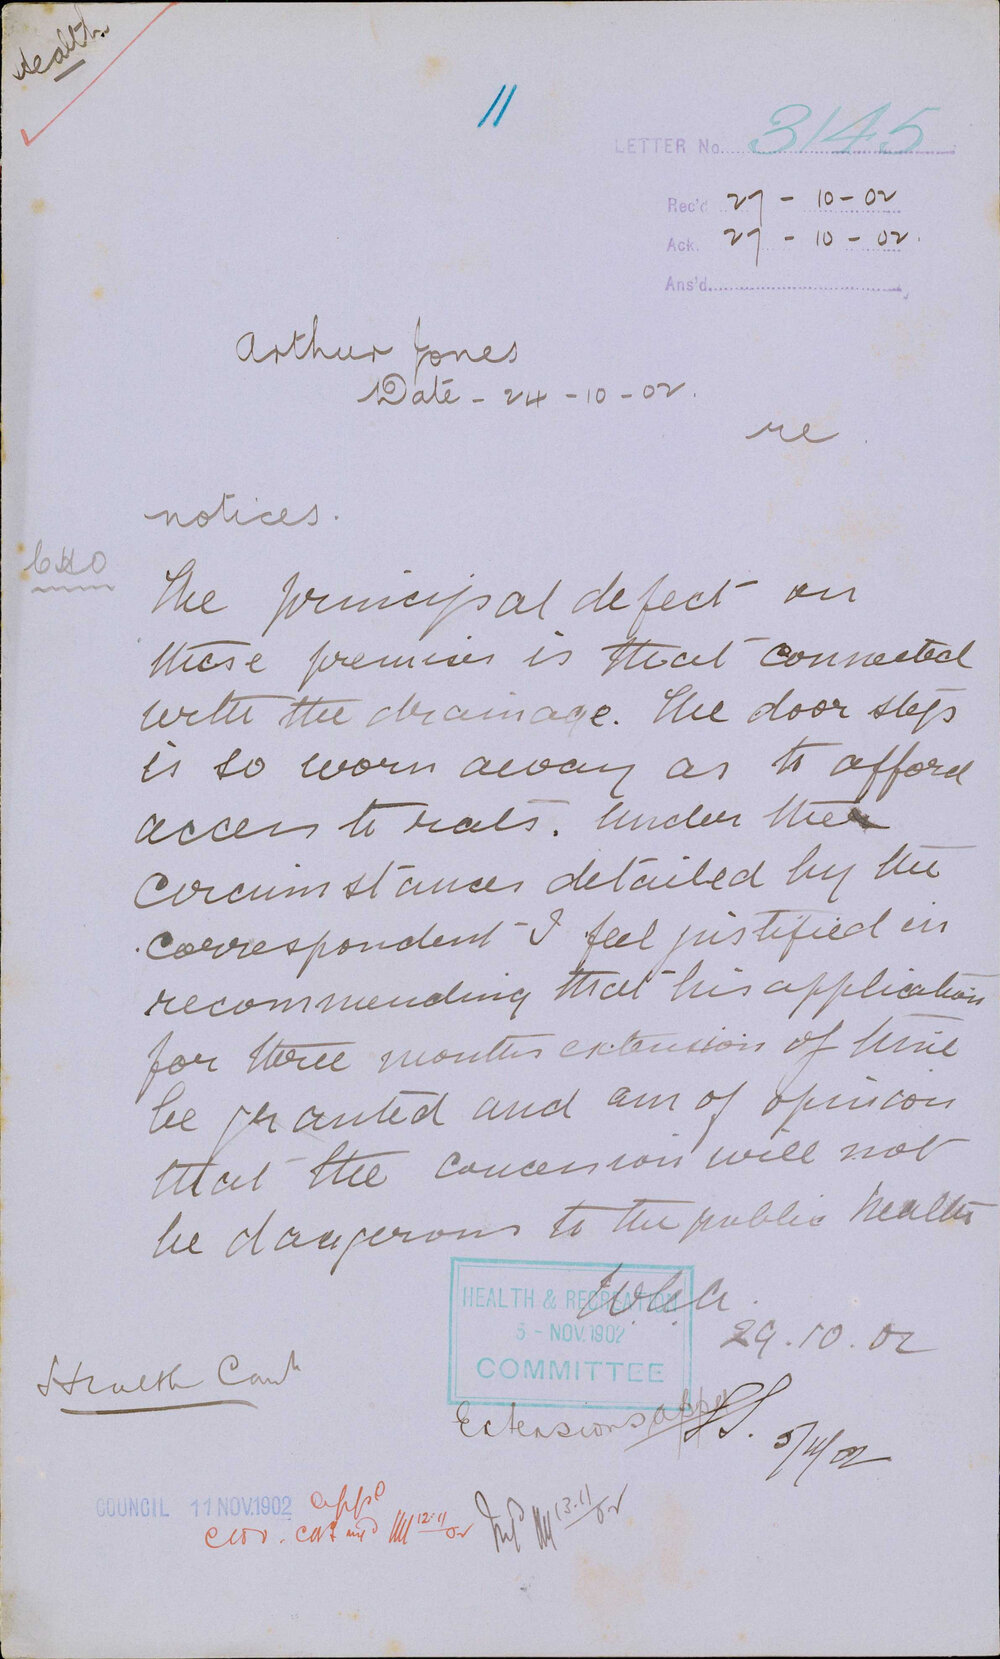 Health.
11
LETTER No. 3145
Rec'd 27-10-02
Ack. 27-10-02.
Ans'd
Arthur Jones
Date - 24-10-02.
re
notices.
CHO
The principal defect on
these premises is that connected
with the drainage. The door steps
is so worn away as to afford
access to rats. Under the
circumstances detailed by the
correspondent I feel justified in
recommending that his application
for three months extension of time
be granted and am of opinion
that the concession will not
be dangerous to the public health
29.10.02
HEALTH & RECREATION
5 - NOV. 1902
COMMITTEE
Health Comt
Extensions appd
5/11/02
COUNCIL 11 NOV. 1902 appd
12.11/02 13.11/02